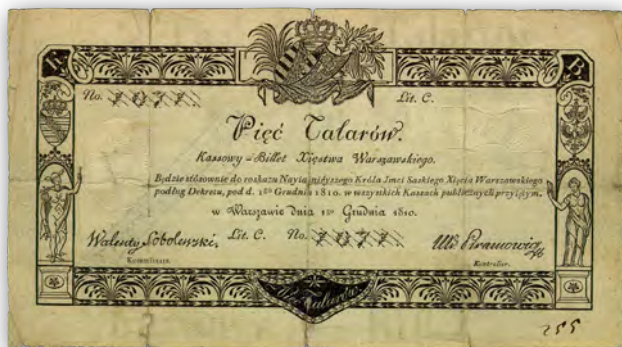 K. B.
No. 7077 Lit. C.
Pięć Talarów.
Kassowy-Billet Xięstwa Warszawskiego.
Będzie stósownie do rozkazu Nayiaśnieyszego Króla Jmci Saskiego Xięcia Warszawskiego
podług Dekretu, pod d. 1go Grudnia 1810. w wszystkich Kassach publicznych przyiętym.
w Warszawie dnia 1go Grudnia 1810.
Walenty Sobolewski, Lit. C. No. 7077 Piramowicz
Kommissarz. Kontroller.
Talarów
255